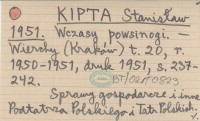 KIPTA Stanisław
1951. Wczasy powsinogi. –
Wierchy (Kraków) t. 20, r.
1950-1951, druk 1951, s. 237-
242.
BT/02/0823
Sprawy gospodarcze i inne
Podtatrza Polskiego i Tatr Polskich.